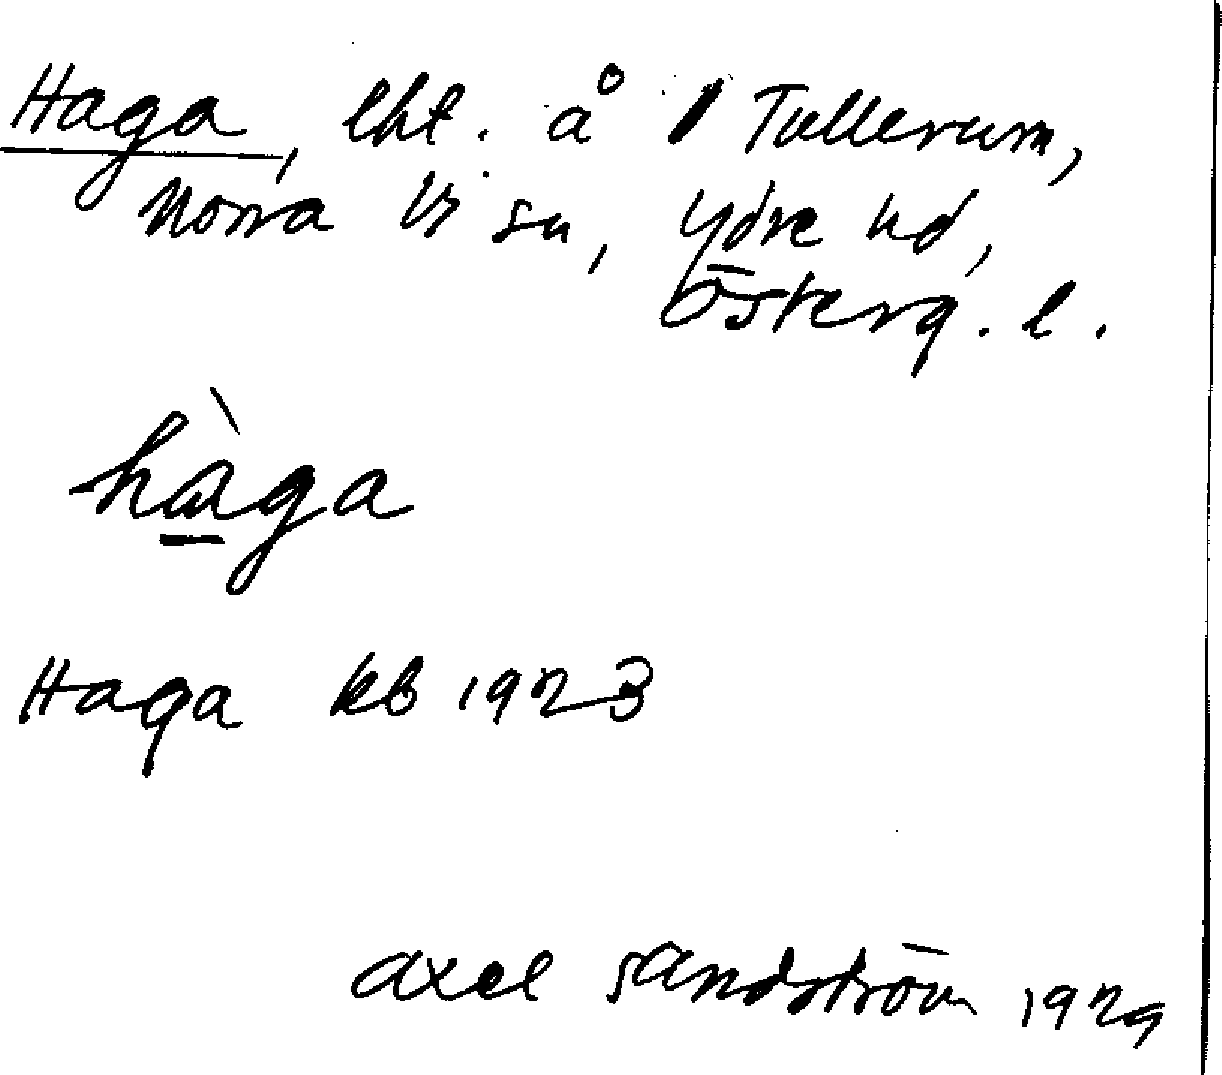 Haga, lht. å Tullerum,
Norra Vi sn, Ydre hd,
Österg. l.
hàga
Haga kb 1923
Axel Sandström 1929